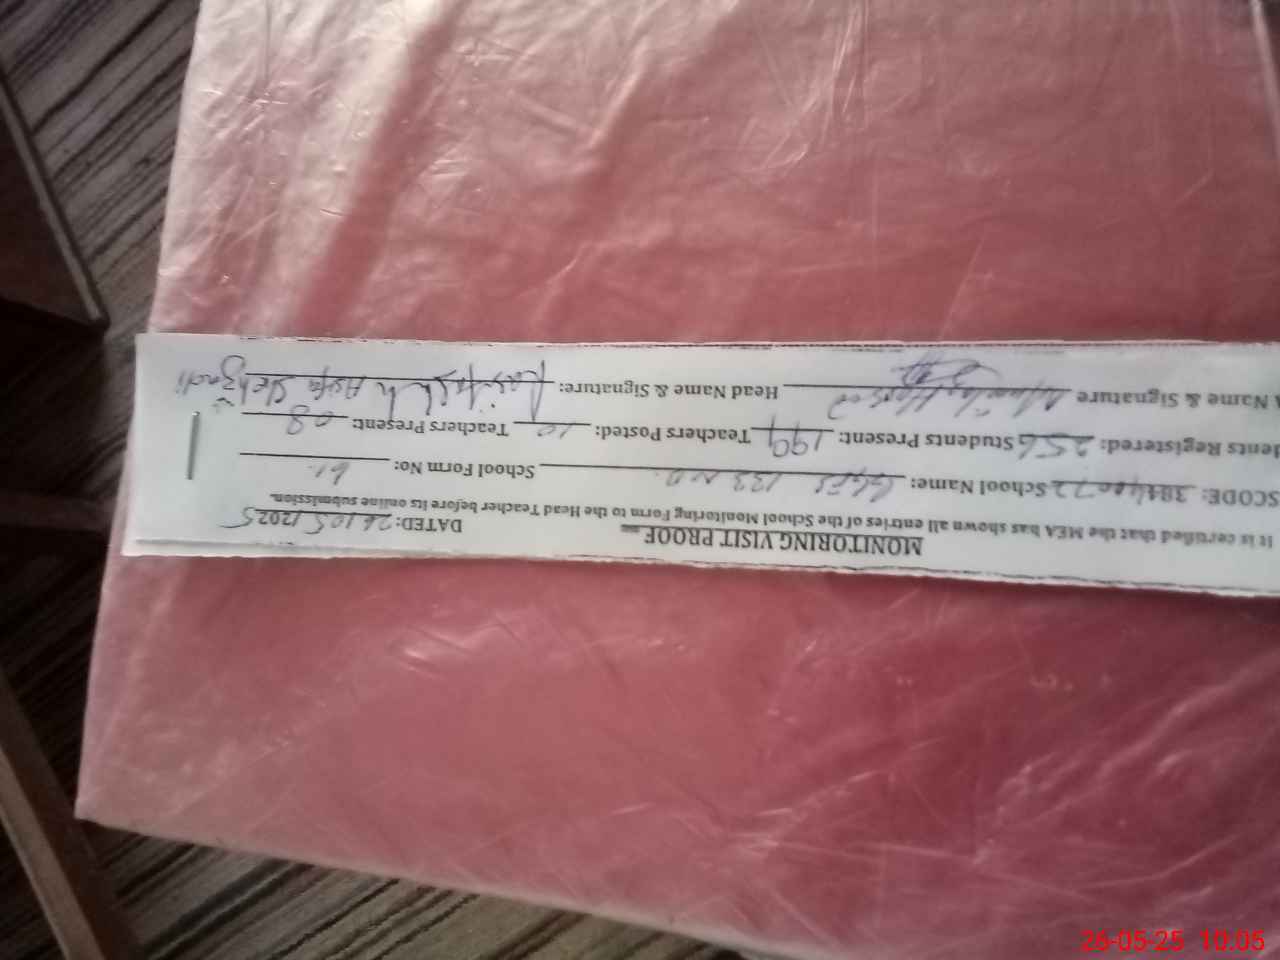 MONITORING VISIT PROOF
DATED: 26/05/2025
It is certified that the MEA has shown all entries of the School Monitoring Form to the Head Teacher before its online submission.
SCODE: School Name: 133 School Form No: 61
Registered: 256 Students Present: 199 Teachers Posted: 10 Teachers Present: 08
Name & Signature Head Name & Signature: Asifa
26-05-25 10:05